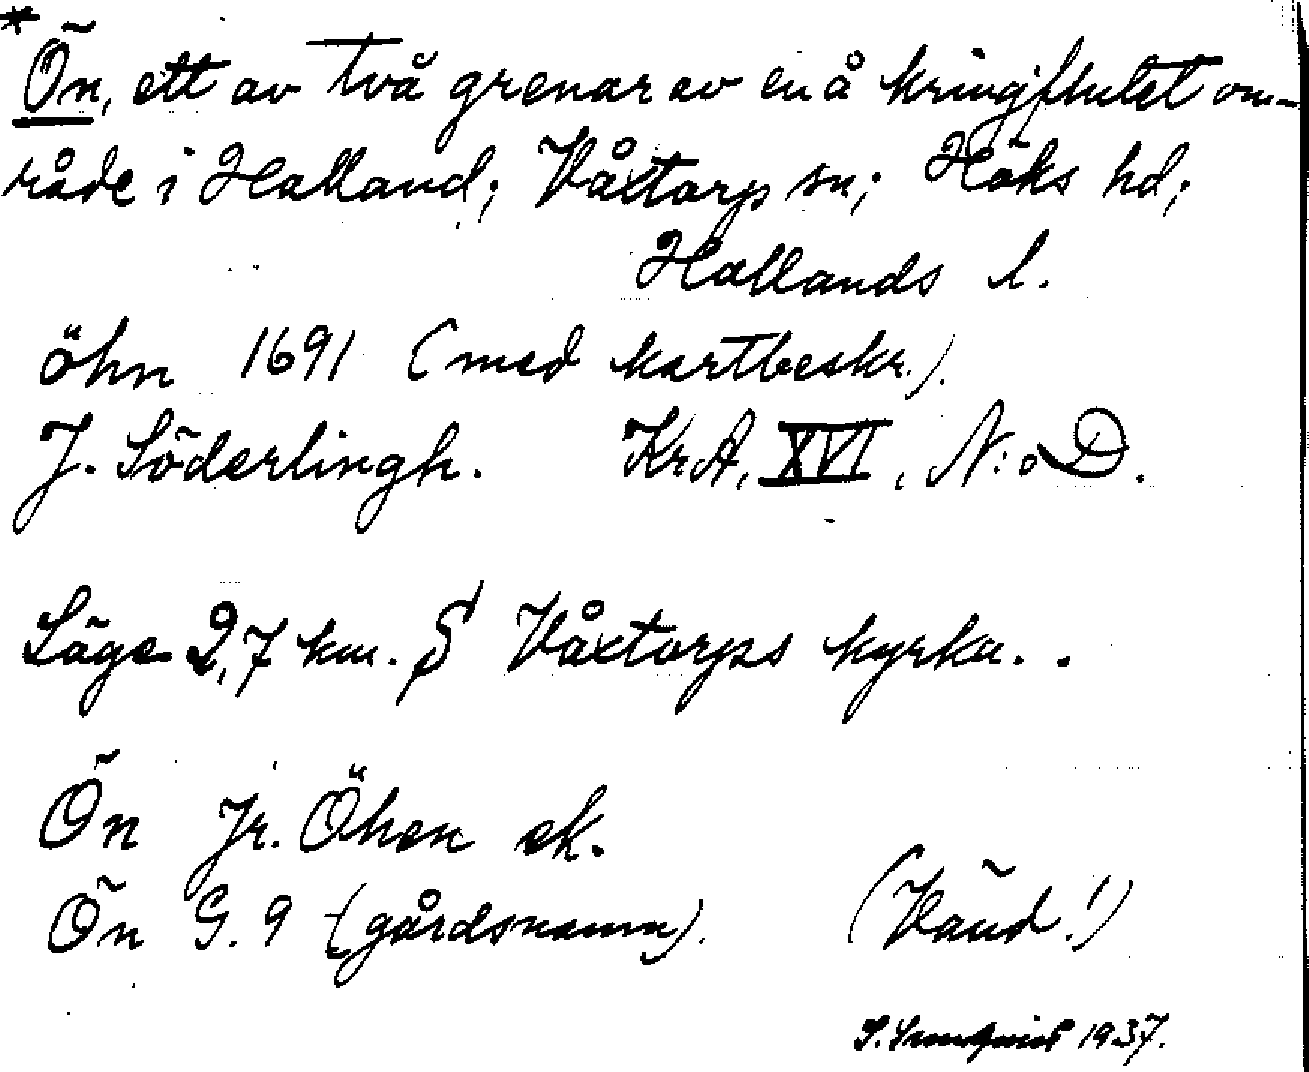 *
Ön, ett av två grenar av en å kringflutet om-
råde i Halland; Våxtorp sn; Höks hd;
Hallands l.
öhn 1691 (med kartbeskr.).
J. Söderlingh. KrA, XVI, N:o D.
Läge 2,7 km. S Våxtorps kyrka..
Ön Jr. Öhen ek.
Ön G. 9 (gårdsnamn). (Vänd!)
1937.